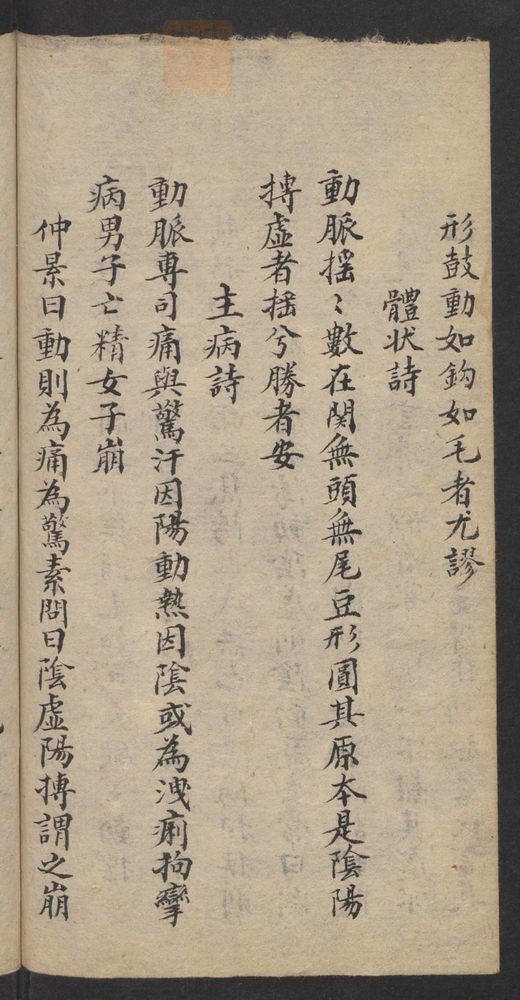 形鼓動如鈎如毛者尤謬
體状詩
動脈揺〻數在関無頭無尾豆形圓其原本是陰陽
摶虚者揺兮勝者安
主病詩
動脈專司痛與驚汗因陽動熱因陰或為洩痢拘攣
病男子亡精女子崩
仲景曰動則為痛為驚素問曰陰虛陽摶謂之崩